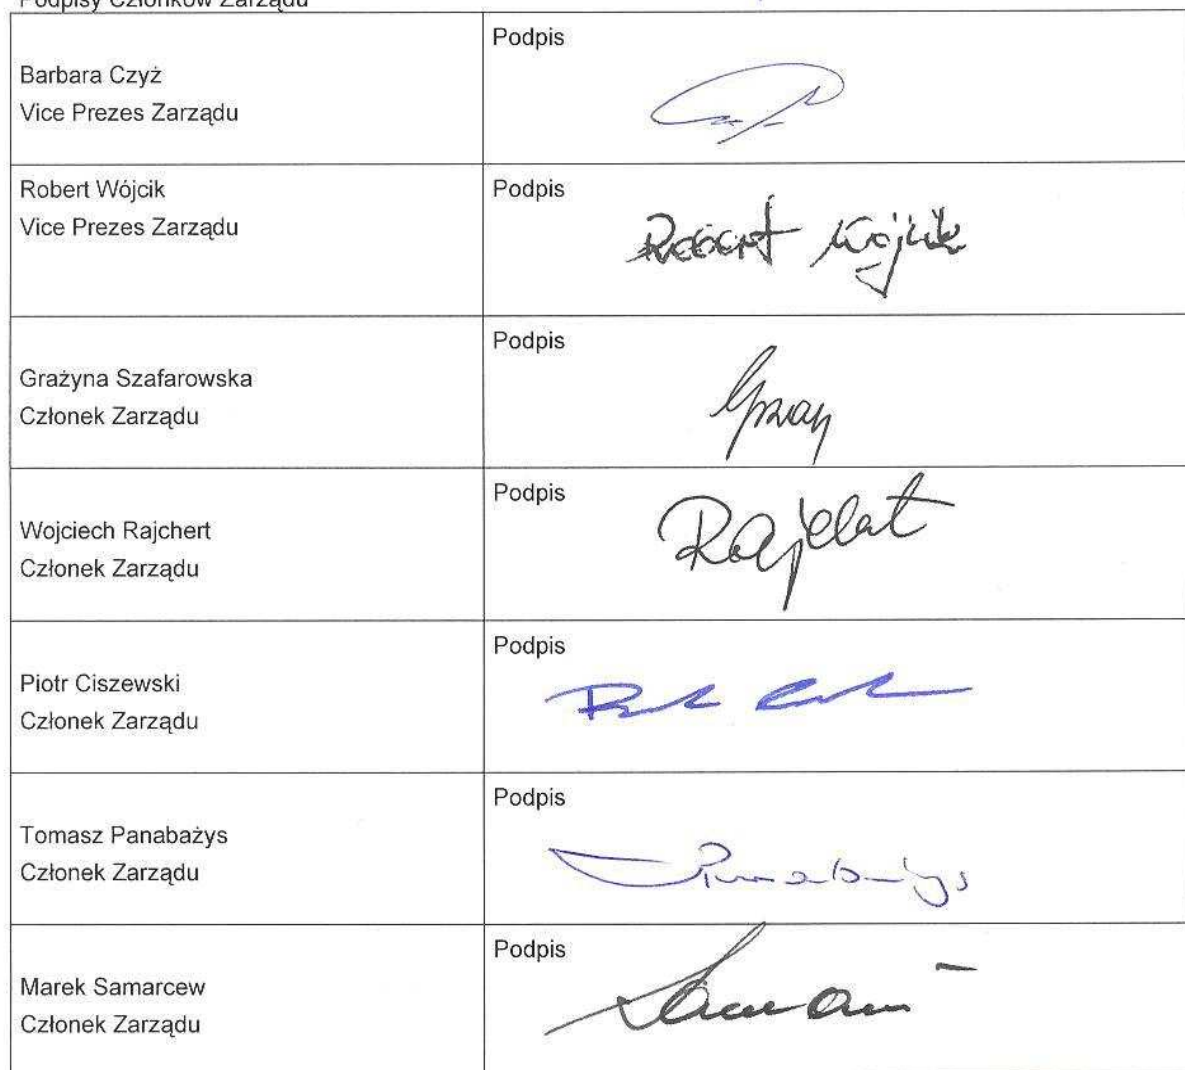 Podpisy Członków Zarządu
Barbara Czyż
Vice Prezes Zarządu
Podpis
Robert Wójcik
Vice Prezes Zarządu
Podpis
Robert Wójcik
Grażyna Szafarowska
Członek Zarządu
Podpis
Wojciech Rajchert
Członek Zarządu
Podpis
Piotr Ciszewski
Członek Zarządu
Podpis
Tomasz Panabażys
Członek Zarządu
Podpis
Marek Samarcew
Członek Zarządu
Podpis